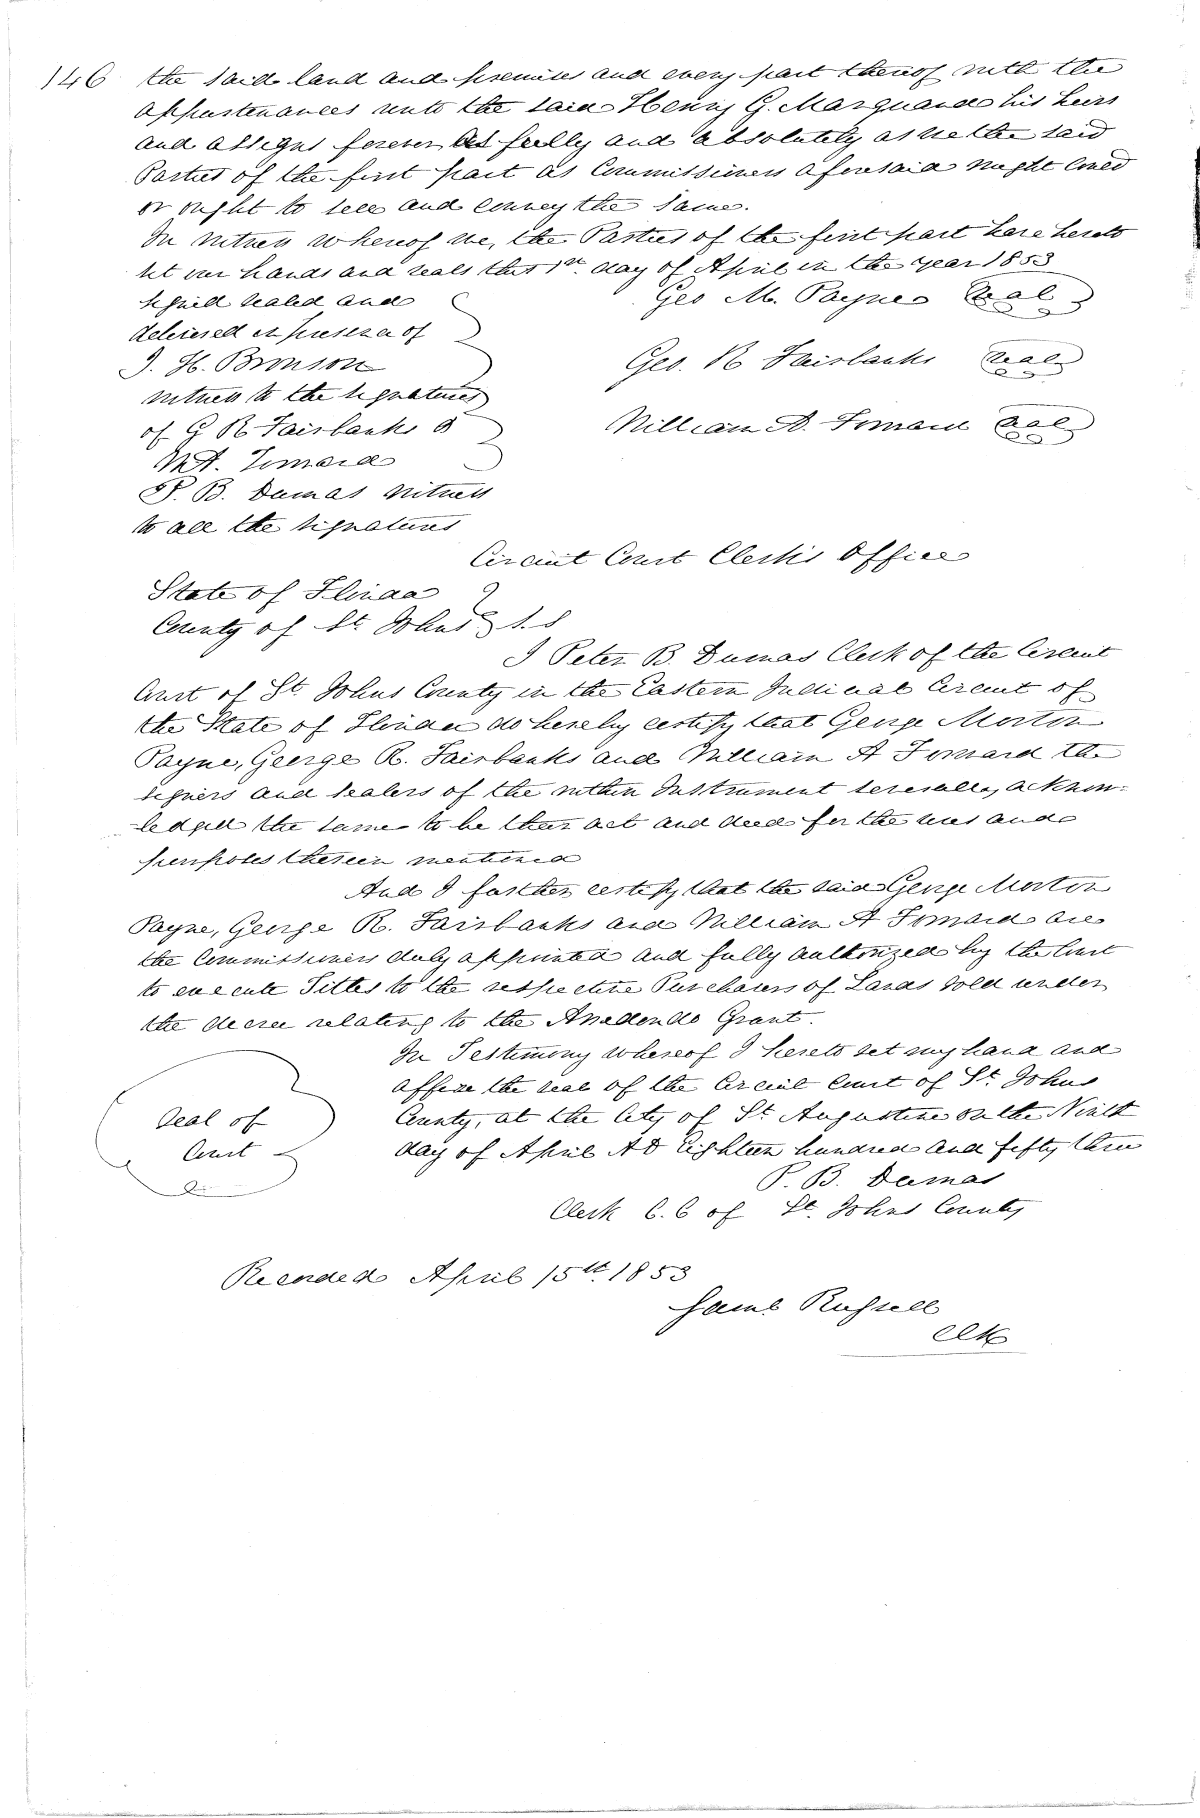 146
the said land and premises and every part thereof with the
appurtenances unto the said Henry G. Marquand his heirs
and assigns forever as fully and absolutely as we the said
Parties of the first part as Commissioners aforesaid might could
or ought to sell and convey the same.
In witness whereof we, the Parties of the first part have hereto
set our hands and seals this 1st day of April in the year 1853
signed sealed and
delivered in presence of
Geo M. Payne Seal
I. H. Bronson
Geo. R Fairbanks Seal
witness to the signatures
of G R Fairbanks &
William A. Forward Seal
W A. Forward
P. B. Dumas witness
to all the signatures
Circuit Court Clerk's Office
State of Florida
County of St. Johns S.S
I Peter B. Dumas Clerk of the Circuit
Court of St. Johns County in the Eastern Judicial Circuit of
the State of Florida do hereby certify that George Morton
Payne, George R. Fairbanks and William A Forward the
signers and sealers of the within Instrument severally acknow-
ledged the same to be their act and deed for the uses and
purposes therein mentioned
And I further certify that the said George Morton
Payne, George R. Fairbanks and William A Forward are
the Commissioners duly appointed and fully authorized by the Court
to execute Titles to the respective Purchasers of Lands sold under
the decree relating to the Arredondo Grant.
In Testimony whereof I hereto set my hand and
affix the seal of the Circuit Court of St. Johns
County, at the City of St Augustine on the Ninth
day of April AD Eighteen hundred and fifty three
Seal of
Court
P. B. Dumas
Clerk C. C of St. Johns County
Recorded April 15th 1853
Saml Russell
Clk